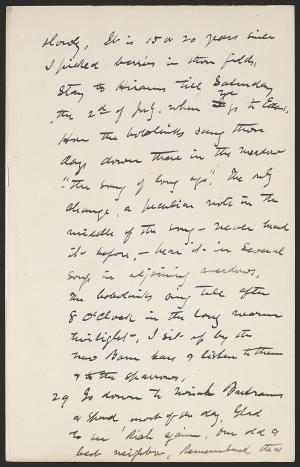 slowly, It is 15 or 20 years since
I picked berries in those fields,
Stay to Hirams till Saturday
the 2d of July, when I go to Edens,
How the bobolinks sang those
days down there in the meadow
"the song of long ago". The only
change, a peculiar note in the
middle of the song – never heard
it before, – hear it in several
songs in adjoining meadows,
The bobolinks sing till after
8 O'Clock in the long warm
twilight, I sit up by the
new Barn & listen to them
& to the sparrows,
29 Go down to Bartrams
& spend most of the day, Glad
to see Rich again, our old &
best neighbor, Remembered that